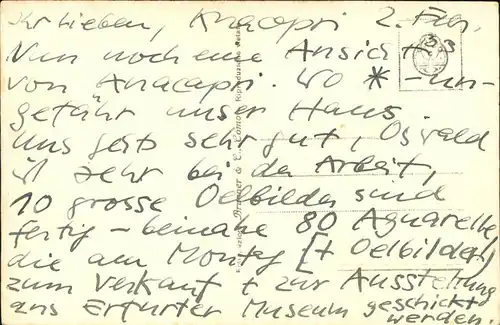 Ihr Lieben, Anacapri 2. Feb.
Nun noch eine Ansicht 33
von Anacapri. Wo * - un-
gefähr unser Haus.
Uns gehts sehr gut, Oswald
ist sehr bei der Arbeit,
10 grosse Oelbilder sind
fertig - beinahe 80 Aquarelle
die am Montg [+ Oelbilder]
zum Verkauf + zur Ausstellung
ans Erfurter Museum geschickt
werden.